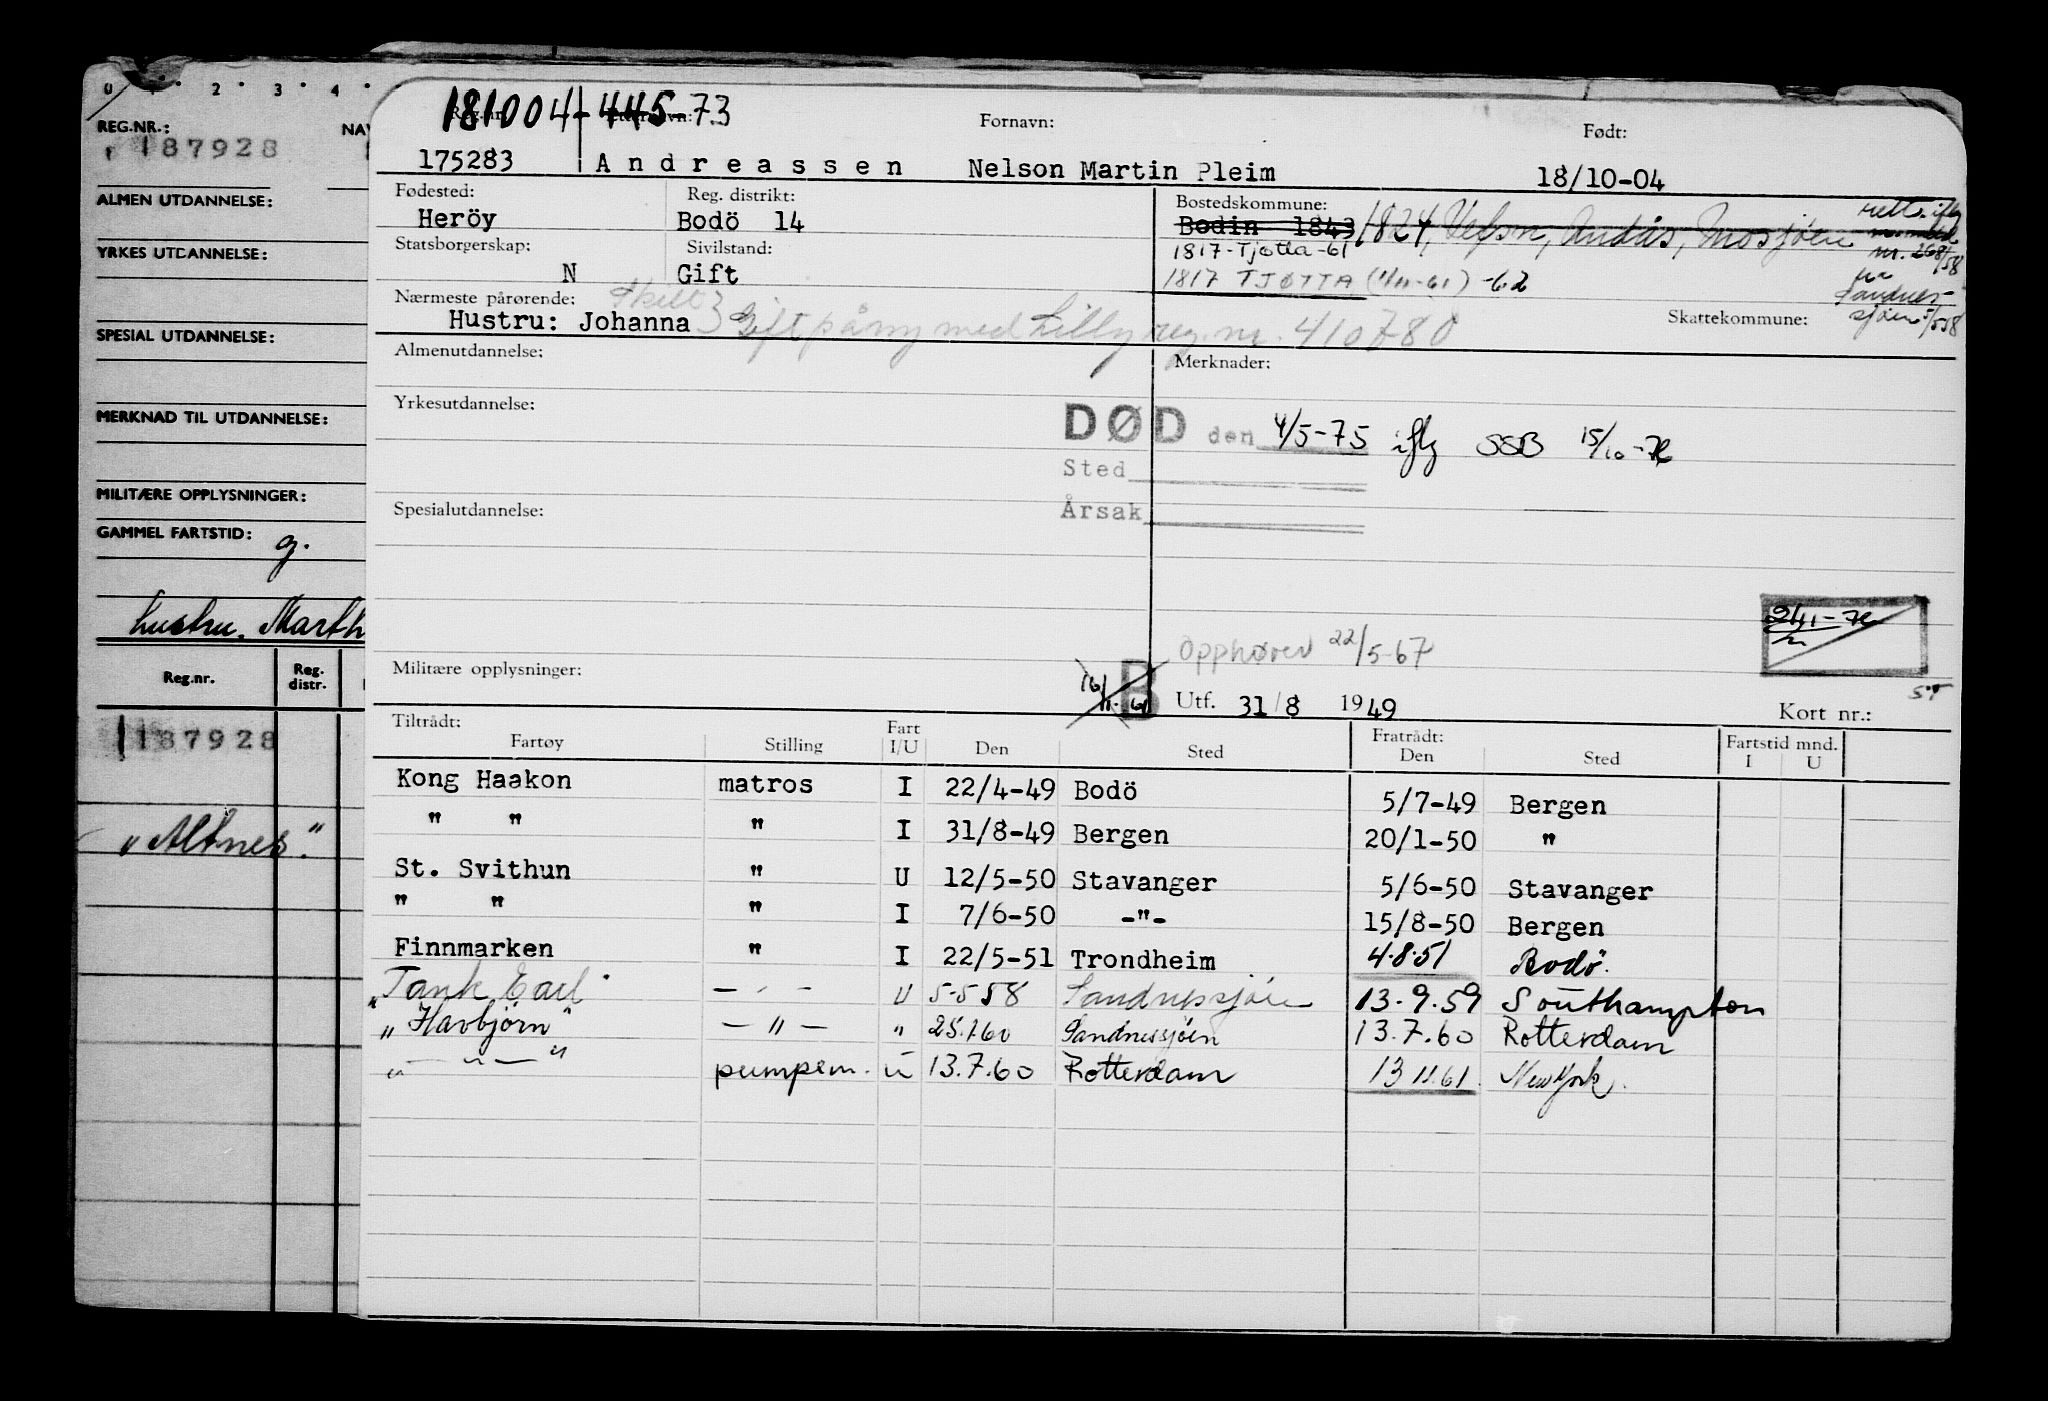 0 1 2 3 4
REG.NR.:
NAV
187928
ALMEN UTDANNELSE:
YRKES UTDANNELSE:
SPESIAL UTDANNELSE:
MERKNAD TIL UTDANNELSE:
MILITÆRE OPPLYSNINGER:
GAMMEL FARTSTID: g.
hustru. Marth
Reg.nr. Reg. distr.
187928
"Altnes".
181004-445-73
Reg.nr. Etternavn: Fornavn: Født:
175283 Andreassen Nelson Martin Pleim 18/10-04
Fødested: Reg. distrikt: Bostedskommune:
Heröy Bodö 14 Bodin 1843 1824, Vefsn, Andås, Mosjøen
1817-Tjøtta-61
Statsborgerskap: Sivilstand:
N Gift
1817 TJØTTA (1/11-61) -62
nr. 268/58
Sandnes-
sjøen 5/5 58
Nærmeste pårørende: Skilt
Hustru: Johanna } Gift på ny med Lilly reg. nr. 410780
Skattekommune:
Almenutdannelse: Merknader:
Yrkesutdannelse:
DØD den 4/5-75 iflg SSB 15/10-76
Sted
Årsak
Spesialutdannelse:
21/11-76
Opphører 22/5-67
Militære opplysninger:
B
Utf. 31/8 1949
Kort nr.:
Tiltrådt: Fratrådt: Fartstid mnd.
Fartøy Stilling Fart I/U Den Sted Den Sted I U
Kong Haakon matros I 22/4-49 Bodö 5/7-49 Bergen
" " " I 31/8-49 Bergen 20/1-50 "
St. Svithun " U 12/5-50 Stavanger 5/6-50 Stavanger
" " " I 7/6-50 -"- 15/8-50 Bergen
Finnmarken " I 22/5-51 Trondheim 4.8.51 Bodö.
"Tank Earl" — " — U 5.5 58 Sandnessjöen 13.9.59 Southampton
"Havbjørn" — " — " 25.1.60 Sandnessjöen 13.7.60 Rotterdam
" — " — " pumpem. u 13.7.60 Rotterdam 13 11.61. New York.